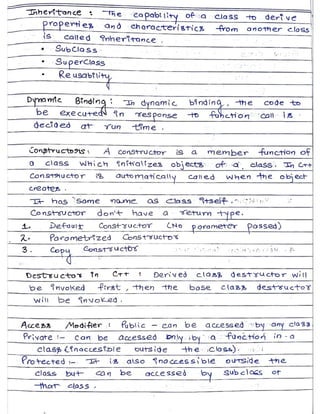 Inheritance : The capability of a class to derive
properties and characteristics from another class
is called Inheritance.
• SubClass
• SuperClass
• Reusability
Dynamic Binding : In dynamic binding, the code to
be executed in response to function call is
decided at run time.
Constructors : A constructor is a member function of
a class which initializes objects of a class. In C++
Constructor is automatically called when the object
creates.
It has same name as class itself.
Constructor don't have a return type.
1. Default Constructor (No parameter passed)
2. Parametrized Constructor
3. Copy Constructor
Destructor in C++ : Derived class destructor will
be invoked first, then the base class destructor
will be invoked.
Access Modifier : Public - can be accessed by any class.
Private :- can be accessed only by a function in a
class (inaccessible outside the class).
Protected :- It is also inaccessible outside the
class but can be accessed by subclass of
that class.